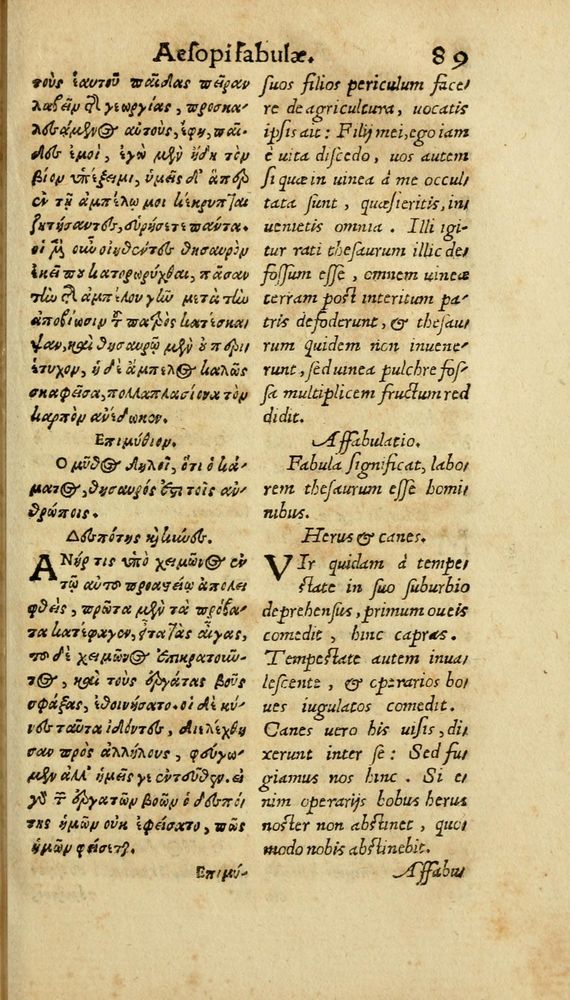 Aesopi fabulæ. 89
τοὺς ἑαυτοῦ παῖδας πεῖραν
λαβεῖν τῆς γεωργίας, προσκα-
λεσάμενος αὐτοὺς, ἔφη, παῖ-
δες ἐμοὶ, ἐγὼ μὲν ἤδη τοῦ
βίου ὑπέξειμι, ὑμεῖς δ' ἅπερ
ἐν τῇ ἀμπέλῳ μοι κέκρυπται
ζητήσαντες, εὑρήσετε πάντα.
οἱ μὲν οὖν οἰηθέντες θησαυρὸν
ἐκεῖ που κατορωρύχθαι, πᾶσαν
τὴν τῆς ἀμπέλου γῆν μετὰ τὴν
ἀποβίωσιν τοῦ πατρὸς κατέσκα
ψαν, καὶ θησαυρῷ μὲν οὐ περι-
έτυχον, ἡ δὲ ἄμπελος καλῶς
σκαφεῖσα, πολλαπλασίονα τὸν
καρπὸν ἀνέδωκεν.
Επιμύθιον.
Ο μῦθος δηλοῖ, ὅτι ὁ κά-
ματος, θησαυρός ἐστι τοῖς ἀν-
θρώποις.
Δεσπότης κὴ κύνες.
ΑΝήρ τις ὑπὸ χειμῶνος ἐν
τῷ αὐτοῦ προαστείῳ ἀπολει
φθεὶς, πρῶτα μὲν τὰ πρόβα-
τα κατέφαγεν, εἶτα τὰς αἶγας,
τοῦ δὲ χειμῶνος ἐπικρατοῦν-
τος, καὶ τοὺς ἐργάτας βοῦς
σφάξας, ἐθοινήσατο. οἱ δὲ κύ-
νες ταῦτα ἰδόντες, διελέχθη
σαν πρὸς ἀλλήλους, φεύγω-
μεν ἀλλ' ἡμεῖς γε ἐντεῦθεν. εἰ
γὰρ τῶν ἐργατῶν βοῶν ὁ δεσπό-
της ἡμῶν οὐκ ἐφείσατο, πῶς
ἡμῶν φείσεται.
Επιμύ-
suos filios periculum face
re de agricultura, uocatis
ipsis ait: Filij mei, ego iam
è uita discedo, uos autem
si quæ in uinea à me occul
tata sunt, quæsieritis, in
uenietis omnia. Illi igi
tur rati thesaurum illic de
fossum esse, omnem uineæ
terram post interitum pa
tris defoderunt, & thesau
rum quidem non inuene
runt, sed uinea pulchre fos
sa multiplicem fructum red
didit.
Affabulatio.
Fabula significat, labo
rem thesaurum esse homi
nibus.
Herus & canes.
VIr quidam à tempe
state in suo suburbio
deprehensus, primum oueis
comedit, hinc capras.
Tempestate autem inua
lescente, & operarios bo
ues iugulatos comedit.
Canes uero his uisis, di
xerunt inter se: Sed fu
giamus nos hinc. Si e
nim operarijs bobus herus
noster non abstinet, quo
modo nobis abstinebit.
Affabu